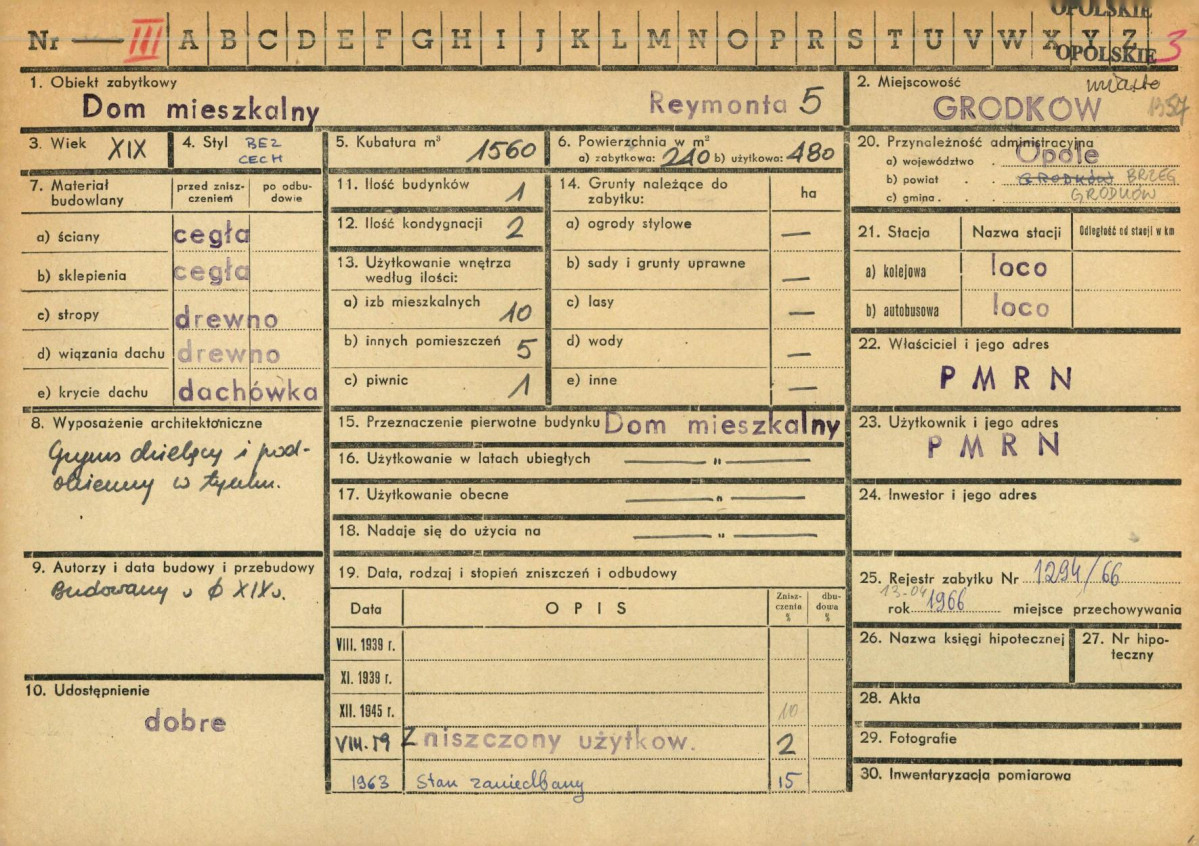 OPOLSKIE
Nr — III A B C D E F G H I J K L M N O P R S T U V W X Y Z 3
OPOLSKIE
1. Obiekt zabytkowy
Dom mieszkalny Reymonta 5
2. Miejscowość miasto
GRODKÓW
3. Wiek XIX
4. Styl BEZ
CECH
5. Kubatura m³ 1560
6. Powierzchnia w m²
a) zabytkowa: 240 b) użytkowa: 480
20. Przynależność administracyjna
a) województwo Opole
b) powiat GRODKÓW BRZEG
c) gmina GRODKÓW
7. Materiał budowlany
przed zniszczeniem
po odbudowie
a) ściany cegła
b) sklepienia cegła
c) stropy drewno
d) wiązania dachu drewno
e) krycie dachu dachówka
11. Ilość budynków 1
12. Ilość kondygnacji 2
13. Użytkowanie wnętrza
według ilości:
a) izb mieszkalnych 10
b) innych pomieszczeń 5
c) piwnic 1
14. Grunty należące do
zabytku:
ha
a) ogrody stylowe —
b) sady i grunty uprawne —
c) lasy —
d) wody —
e) inne —
21. Stacja Nazwa stacji Odległość od stacji w km
a) kolejowa loco
b) autobusowa loco
22. Właściciel i jego adres
PMRN
8. Wyposażenie architektoniczne
Gzyms dzielący i pod-
okienny w tynku.
15. Przeznaczenie pierwotne budynku Dom mieszkalny
16. Użytkowanie w latach ubiegłych — " —
17. Użytkowanie obecne — " —
18. Nadaje się do użycia na — " —
23. Użytkownik i jego adres
PMRN
24. Inwestor i jego adres
9. Autorzy i data budowy i przebudowy
Budowany
XIX w.
19. Data, rodzaj i stopień zniszczeń i odbudowy
Data OPIS Znisz-
czenia
%
dbu-
dowa
%
VIII. 1939 r.
XI. 1939 r.
XII. 1945 r. 10
VIII. 59 Zniszczony użytkow. 2
1963 Stan zaniedbany 15
25. Rejestr zabytku Nr 1294/66
13-04
rok 1966 miejsce przechowywania
26. Nazwa księgi hipotecznej
27. Nr hipo-
teczny
10. Udostępnienie
dobre
28. Akta
29. Fotografie
30. Inwentaryzacja pomiarowa